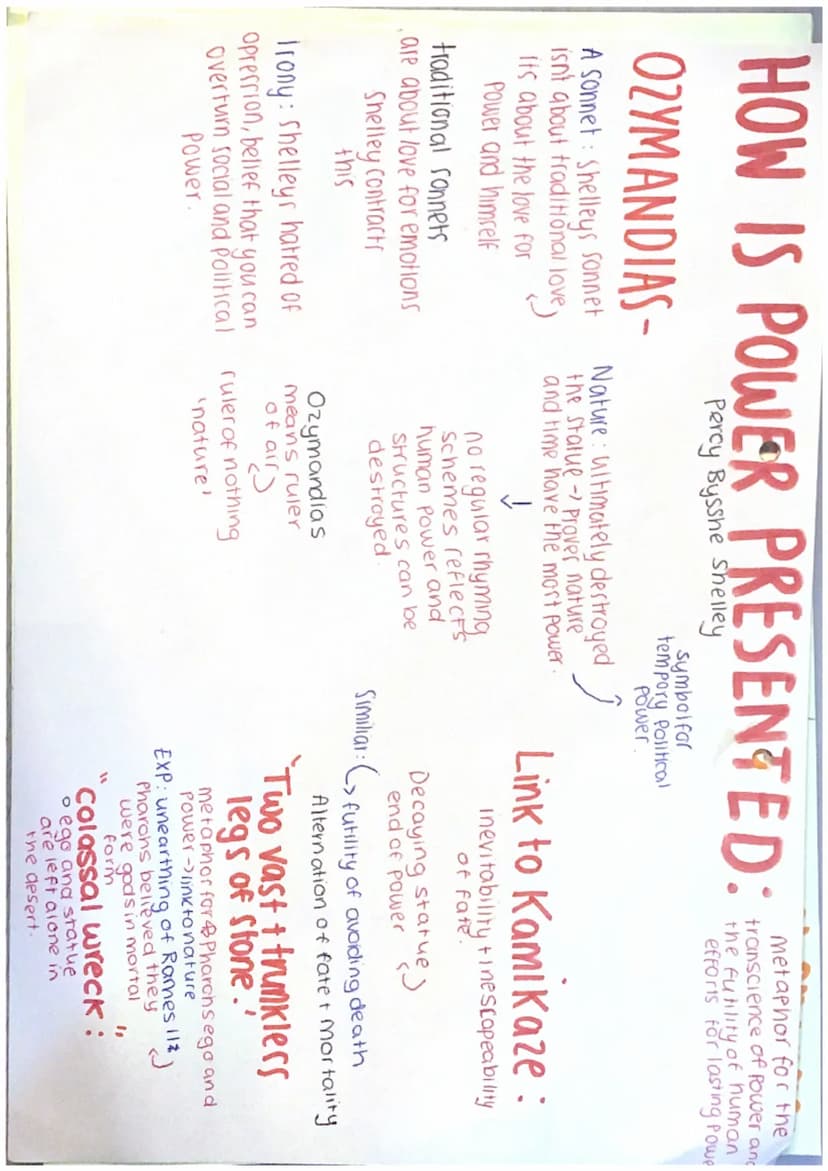 HOW IS POWER PRESENTED:
Percy Bysshe Shelley
metaphor for the
transcience of power an
the futility of human
efforts for lasting powe
OZYMANDIAS-
symbol for
tempory political
power.
A sonnet: Shelleys sonnet
isnt about traditional love
its about the love for
power and himself
traditional sonnets
are about love for emotions
Shelley contracts
this
Irony: Shelleys hatred of
opression, belief that you can
overturn social and political
power.
Nature: ultimately destroyed
the statue -> Proves nature
and time have the most power.
no regular rhyming
schemes reflects
human power and
structures can be
destroyed.
Ozymandias
means ruler
of air
ruler of nothing
'nature'
Link to Kamikaze:
inevitability + inescapeability
of fate.
Decaying statue
end of power
Similiar: futility of avoiding death
Alternation of fate + mortality
'Two vast + trunkless
legs of stone.'
metaphor for Pharohs ego and
power -> link to nature
EXP: unearthing of Rameses II
Pharohs believed they
were gods in mortal
form
"colossal wreck":
ego and statue
are left alone in
the desert.